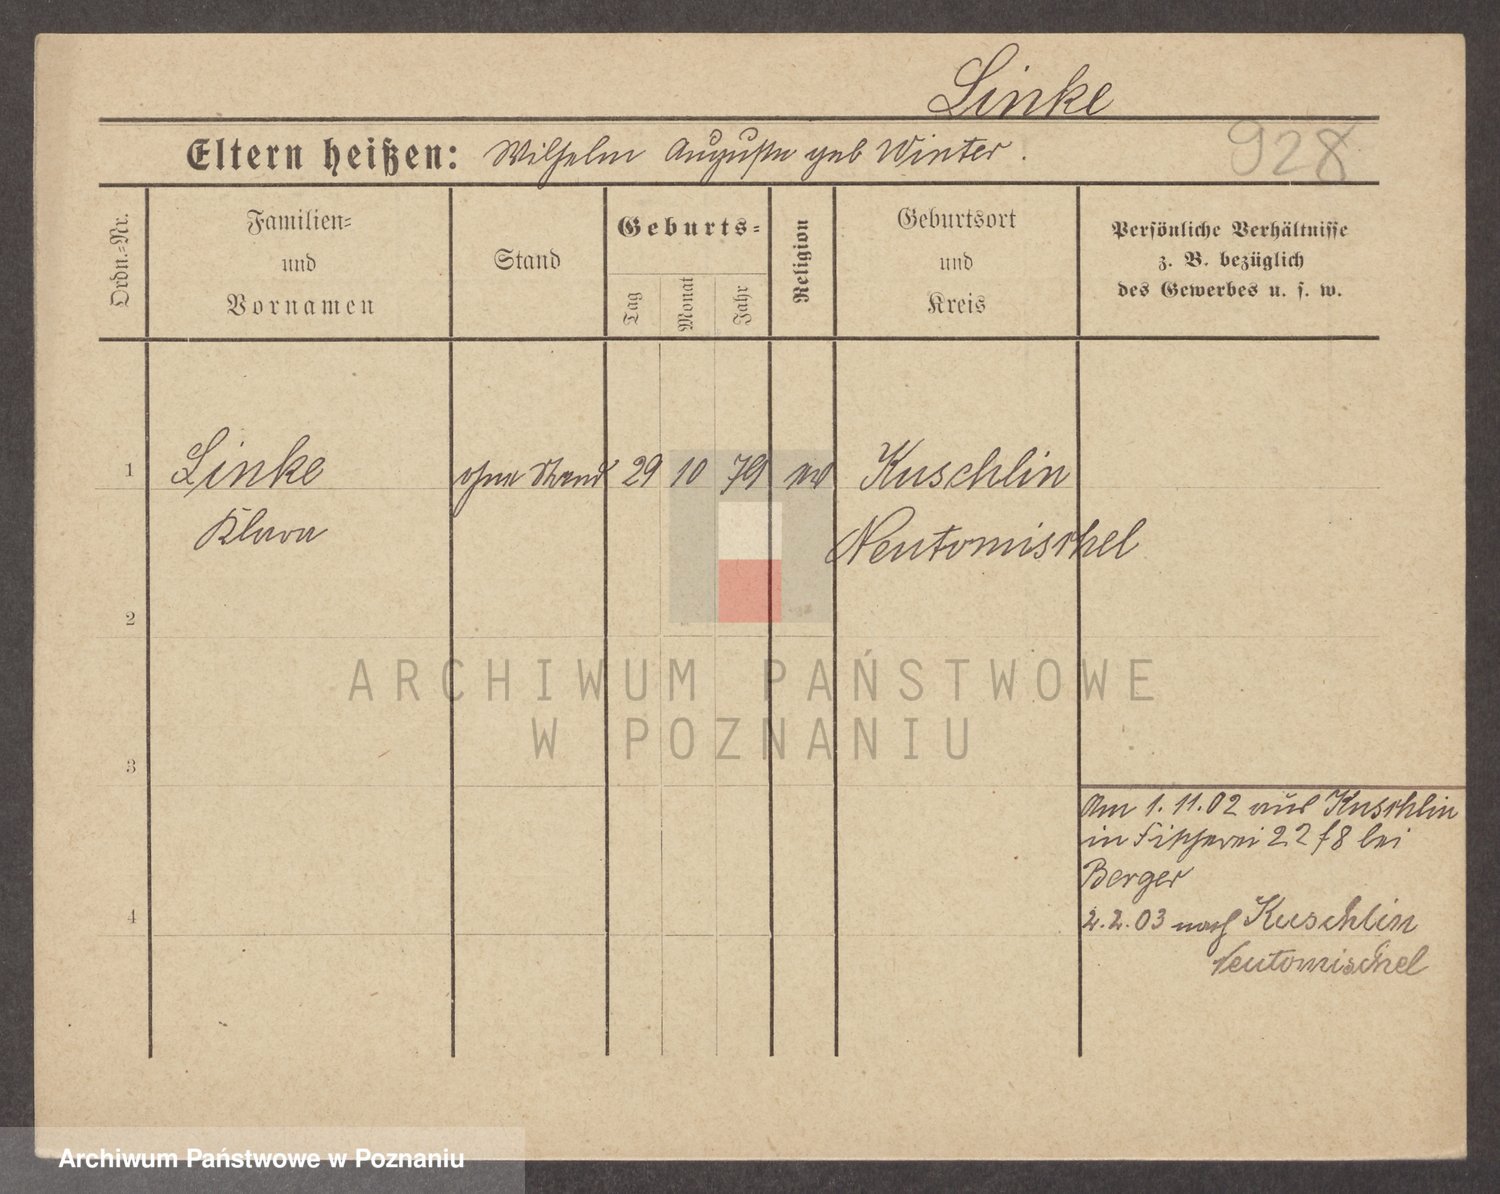 Linke
928
Eltern heißen: Wilhelm Auguste geb Winter.
Ordn.=Nr.
Familien=
und
Vornamen
Stand
Geburts=
Tag
Monat
Jahr
Religion
Geburtsort
und
Kreis
Persönliche Verhältnisse
z. B. bezüglich
des Gewerbes u. s. w.
1 Linke ohne Stand 29 10 79 ev Kuschlin
Klara Neutomischel
2
3
4
Am 1.11.02 aus Kuschlin
in Fischerei 22 f8 bei
Berger
2.2.03 nach Kuschlin
Neutomischel
ARCHIWUM PAŃSTWOWE
W POZNANIU
Archiwum Państwowe w Poznaniu